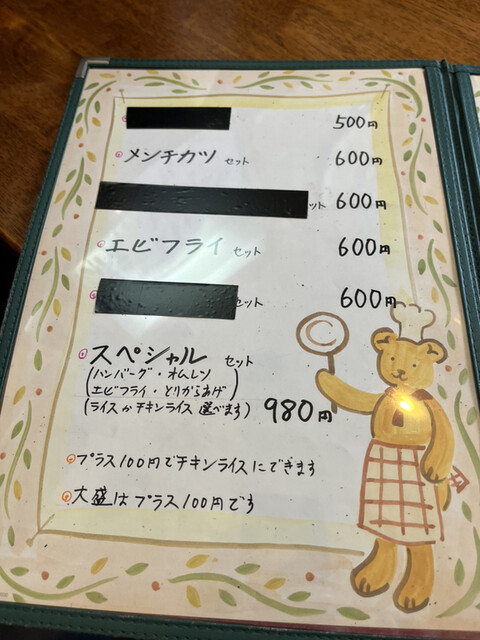 500円
メンチカツ セット 600円
ット 600円
エビフライ セット 600円
セット 600円
スペシャル セット
(ハンバーグ・オムレツ
エビフライ・とりからあげ)
(ライスかチキンライス 選べます) 980円
プラス100円でチキンライスにできます
大盛はプラス100円です